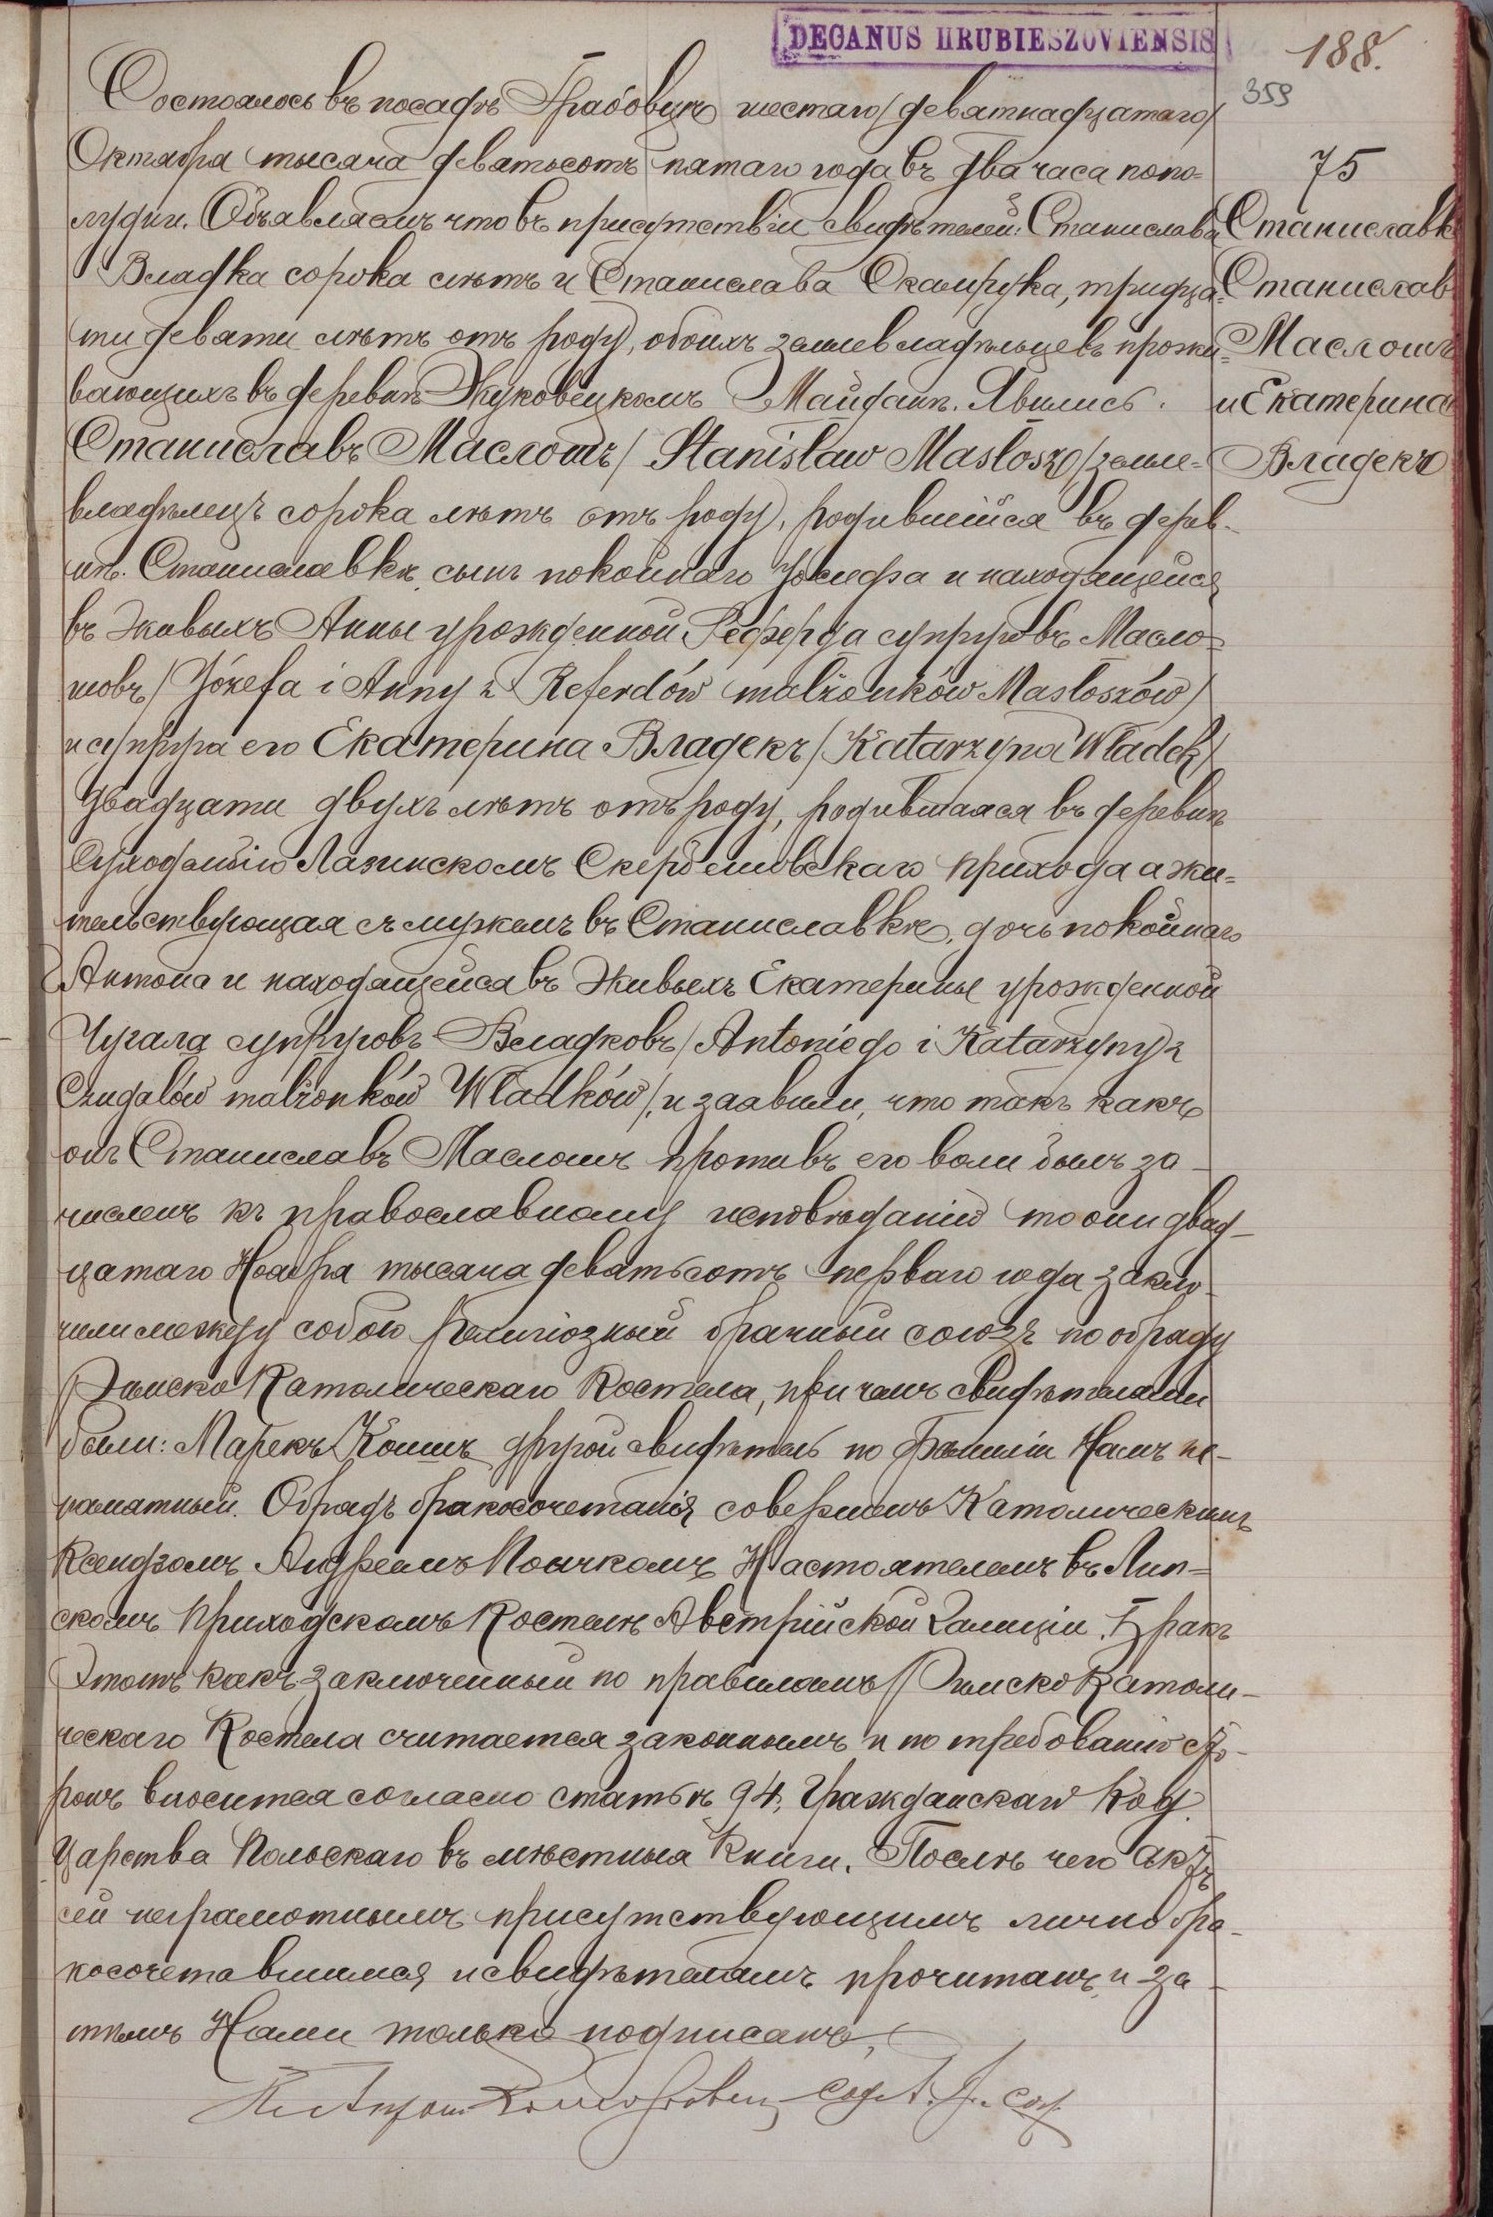 DECANUS HRUBIESZOVIENSIS
188.
359
Состоялось въ посадѣ Грабовцѣ шестаго /девятнадцатаго/
Октября тысяча девятьсотъ пятаго года въ два часа попо=
лудни. Объявляемъ что въ присутствіи свидѣтелей: Станислава
Владка сорока лѣтъ и Станислава Скомрука, тридца=
ти девяти лѣтъ отъ роду, обоихъ землевладѣльцевъ прожи=
вающихъ въ деревнѣ Жуковецкомъ Майданѣ. Явились
Станиславъ Маслошъ / Stanisław Masłosz / земле=
владѣлецъ сорока лѣтъ отъ роду, родившійся въ дерев-
нѣ Станиславкѣ сынъ покойнаго Іосифа и находящейся
въ живыхъ Анны урожденной Реферда супруговъ Масло=
шовъ / Józefa i Anny z Referdów małżonków Masłoszów /
и супруга его Екатерина Владекъ / Katarzyna Władek /
двадцати двухъ лѣтъ отъ роду, родившаяся въ деревнѣ
Суходольѣ Лазинскомъ Скербешовскаго прихода а жи=
тельствующая съ мужемъ въ Станиславкѣ, дочь покойнаго
Антона и находящейся въ живыхъ Екатерины урожденной
Чугала супруговъ Владковъ / Antoniego i Katarzyny z
Czugałów małżonków Władków /, и заявили, что такъ какъ
онъ Станиславъ Маслошъ противъ его воли былъ за-
численъ къ православному исповѣданію то они двад-
цатаго Ноября тысяча девятьсотъ перваго года заклю-
чили между собою религіозный брачный союзъ по обряду
Римско Католическаго Костела, при чемъ свидѣтелями
были: Марекъ Кошъ другой свидѣтель по фамиліи Намъ не-
памятный. Обрядъ бракосочетанія совершенъ Католическимъ
Ксендзомъ Андреемъ Настоятелемъ въ Лип=
скомъ Приходскомъ Костелѣ Австрійской Галиціи. Бракъ
Этотъ какъ заключенный по правиламъ Римско Католи-
ческаго Костела считается законнымъ и по требованію сто-
ронъ вносится согласно статьѣ 94, Гражданскаго Код.
Царства Польскаго въ мѣстныя Книги. Послѣ чего актъ
сей неграмотнымъ присутствующимъ лично бра-
косочетавшимся и свидѣтелямъ прочитанъ и за-
тѣмъ Нами только подписанъ.
75
Станиславка
Станиславъ
Маслошъ
и Екатерина
Владекъ